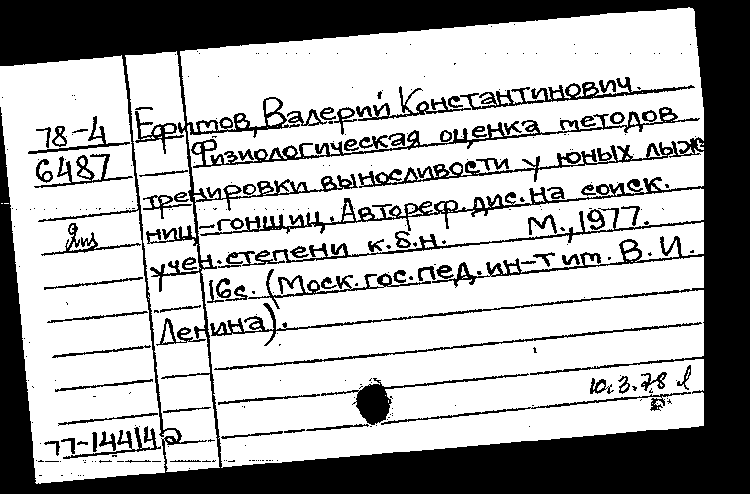 78-4
6487
Ефимов, Валерий Константинович.
Физиологическая оценка методов
тренировки выносливости у юных лыж
ниц-гонщиц. Автореф. дис. на соиск.
учен. степени к.б.н. М., 1977.
16с. (Моск. гос. пед. ин-т им. В. И.
Ленина).
10.3.78
77-14414а